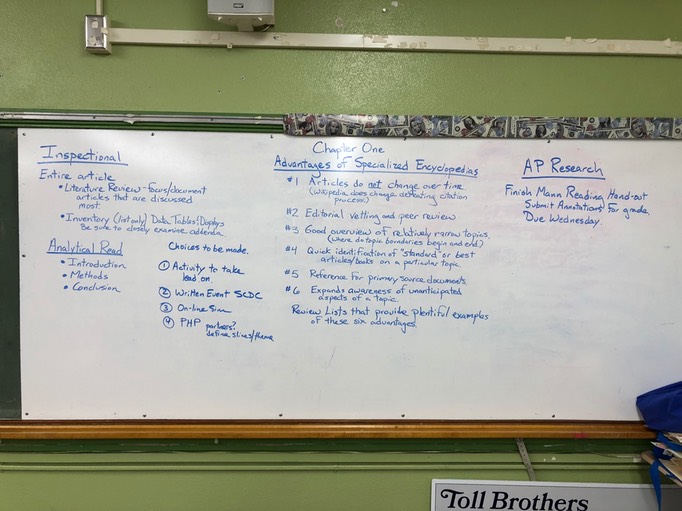 Inspectional
Entire article
• Literature Review - focus/document
articles that are discussed
most.
• Inventory (list only) Data, Tables,
Be sure to closely examine addenda.
Analytical Read
• Introduction
• Methods
• Conclusion
Choices to be made.
① Activity to take
lead on.
② Written Event SCDC
③ On-line Sim
④ PHP partners?
define slices/theme
Chapter One
Advantages of Specialized Encyclopedias
#1 Articles do not change over time
(Wikipedia does change, defeating citation
process)
#2 Editorial vetting and peer review
#3 Good overview of relatively narrow topics
(where do topic boundaries begin and end)
#4 Quick identification of "standard" or best
articles/books on a particular topic.
#5 Reference for primary source documents
#6 Expands awareness of unanticipated
aspects of a topic.
Review Lists that provide plentiful examples
of these six advantages.
AP Research
Finish Mann Reading Hand-out
Submit Annotations for grade
Due Wednesday
Toll Brothers